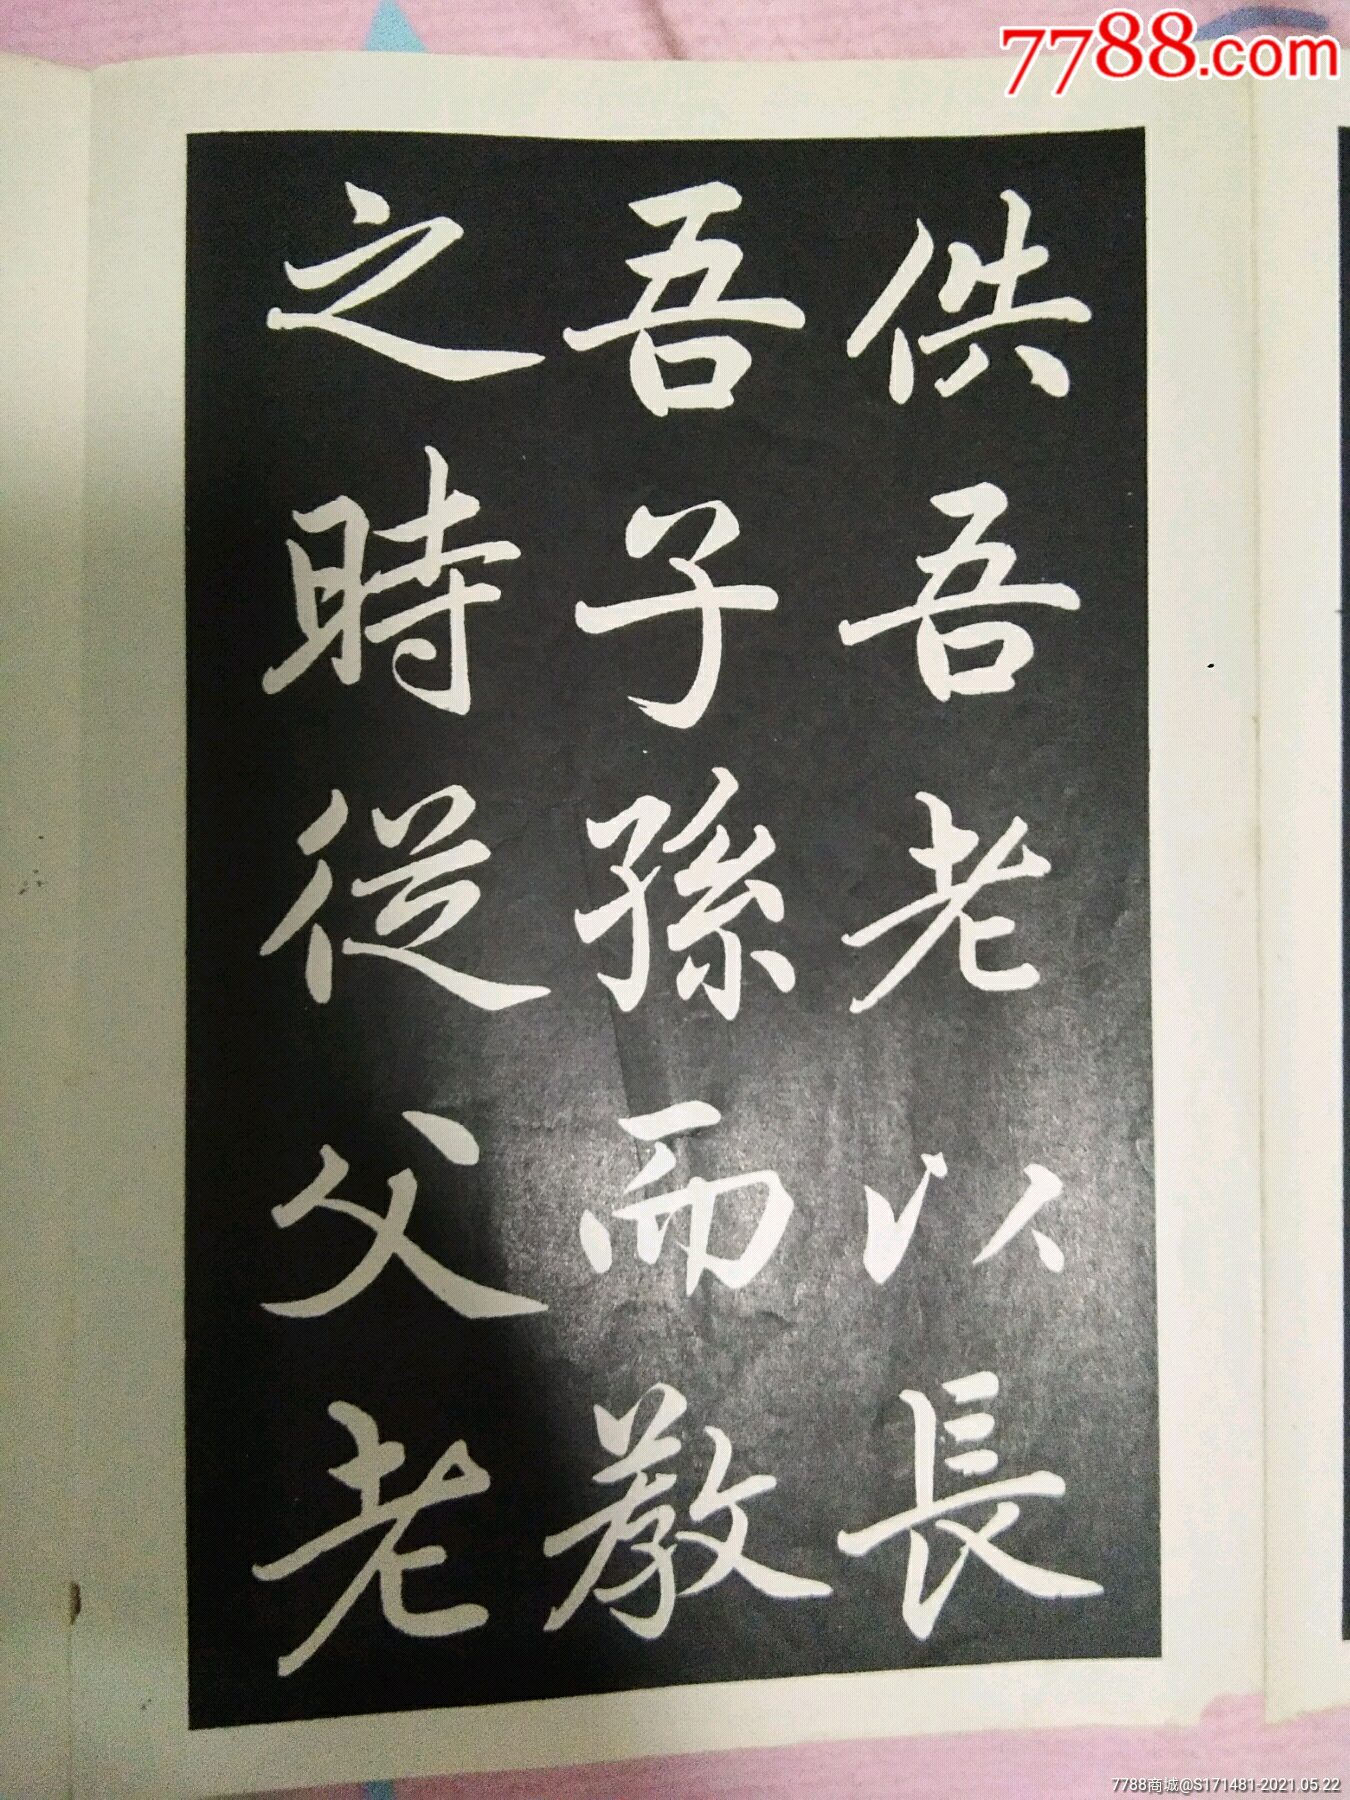 7788.com
供吾老以長
吾子孫而教
之時從父老
7788商城@S171481-2021.05.22